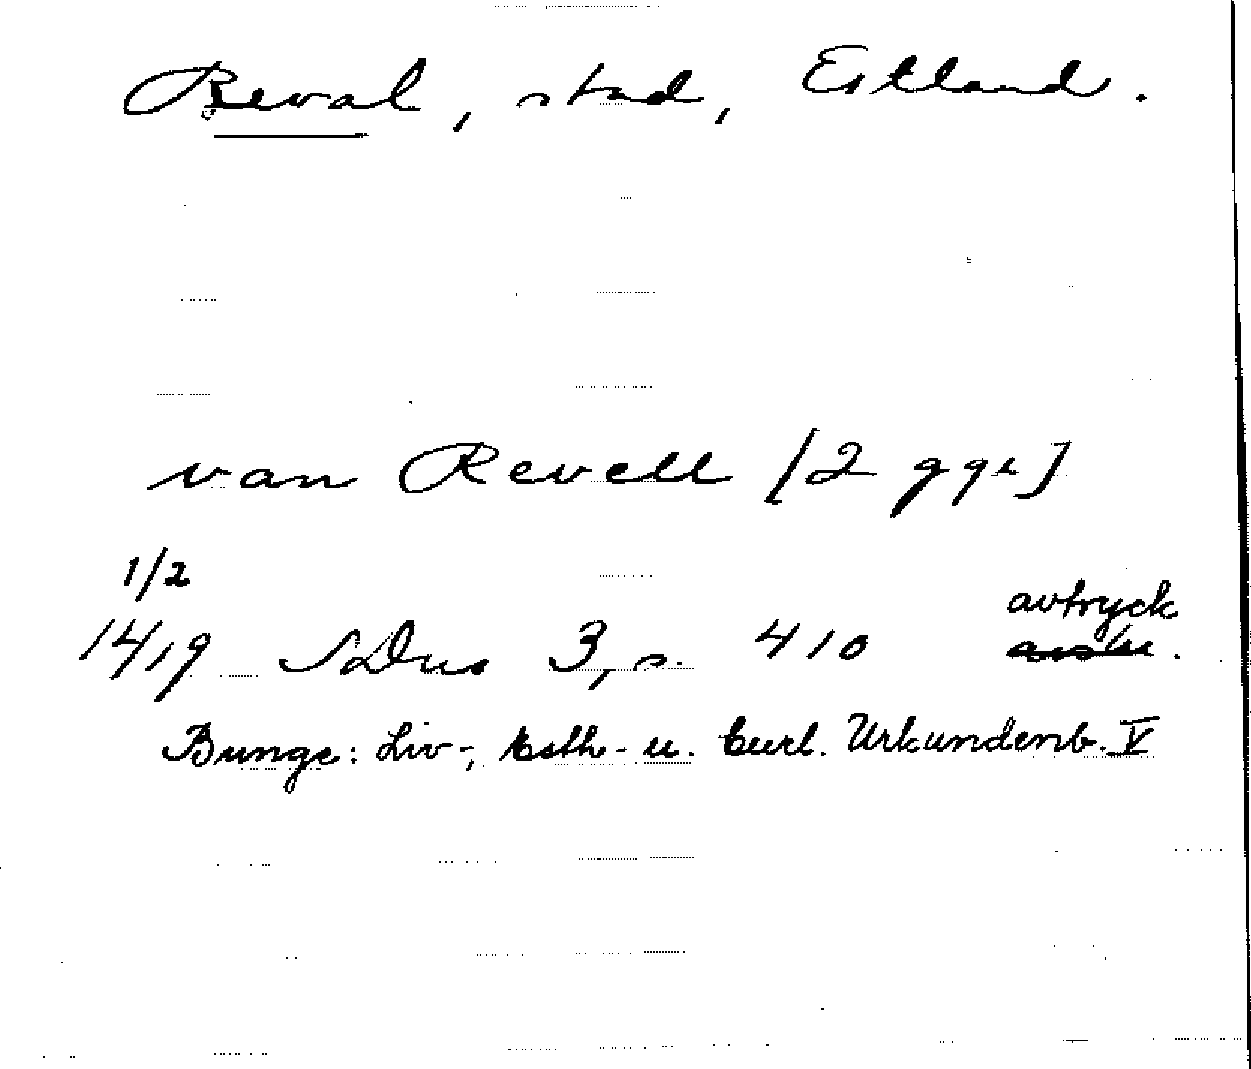 Reval, stad, Estland.
van Revell [2 ggr]
1/2
avtryck
1419 SDns 3, s. 410
Bunge: Liv-, Esth- u. Curl. Urkundenb. V